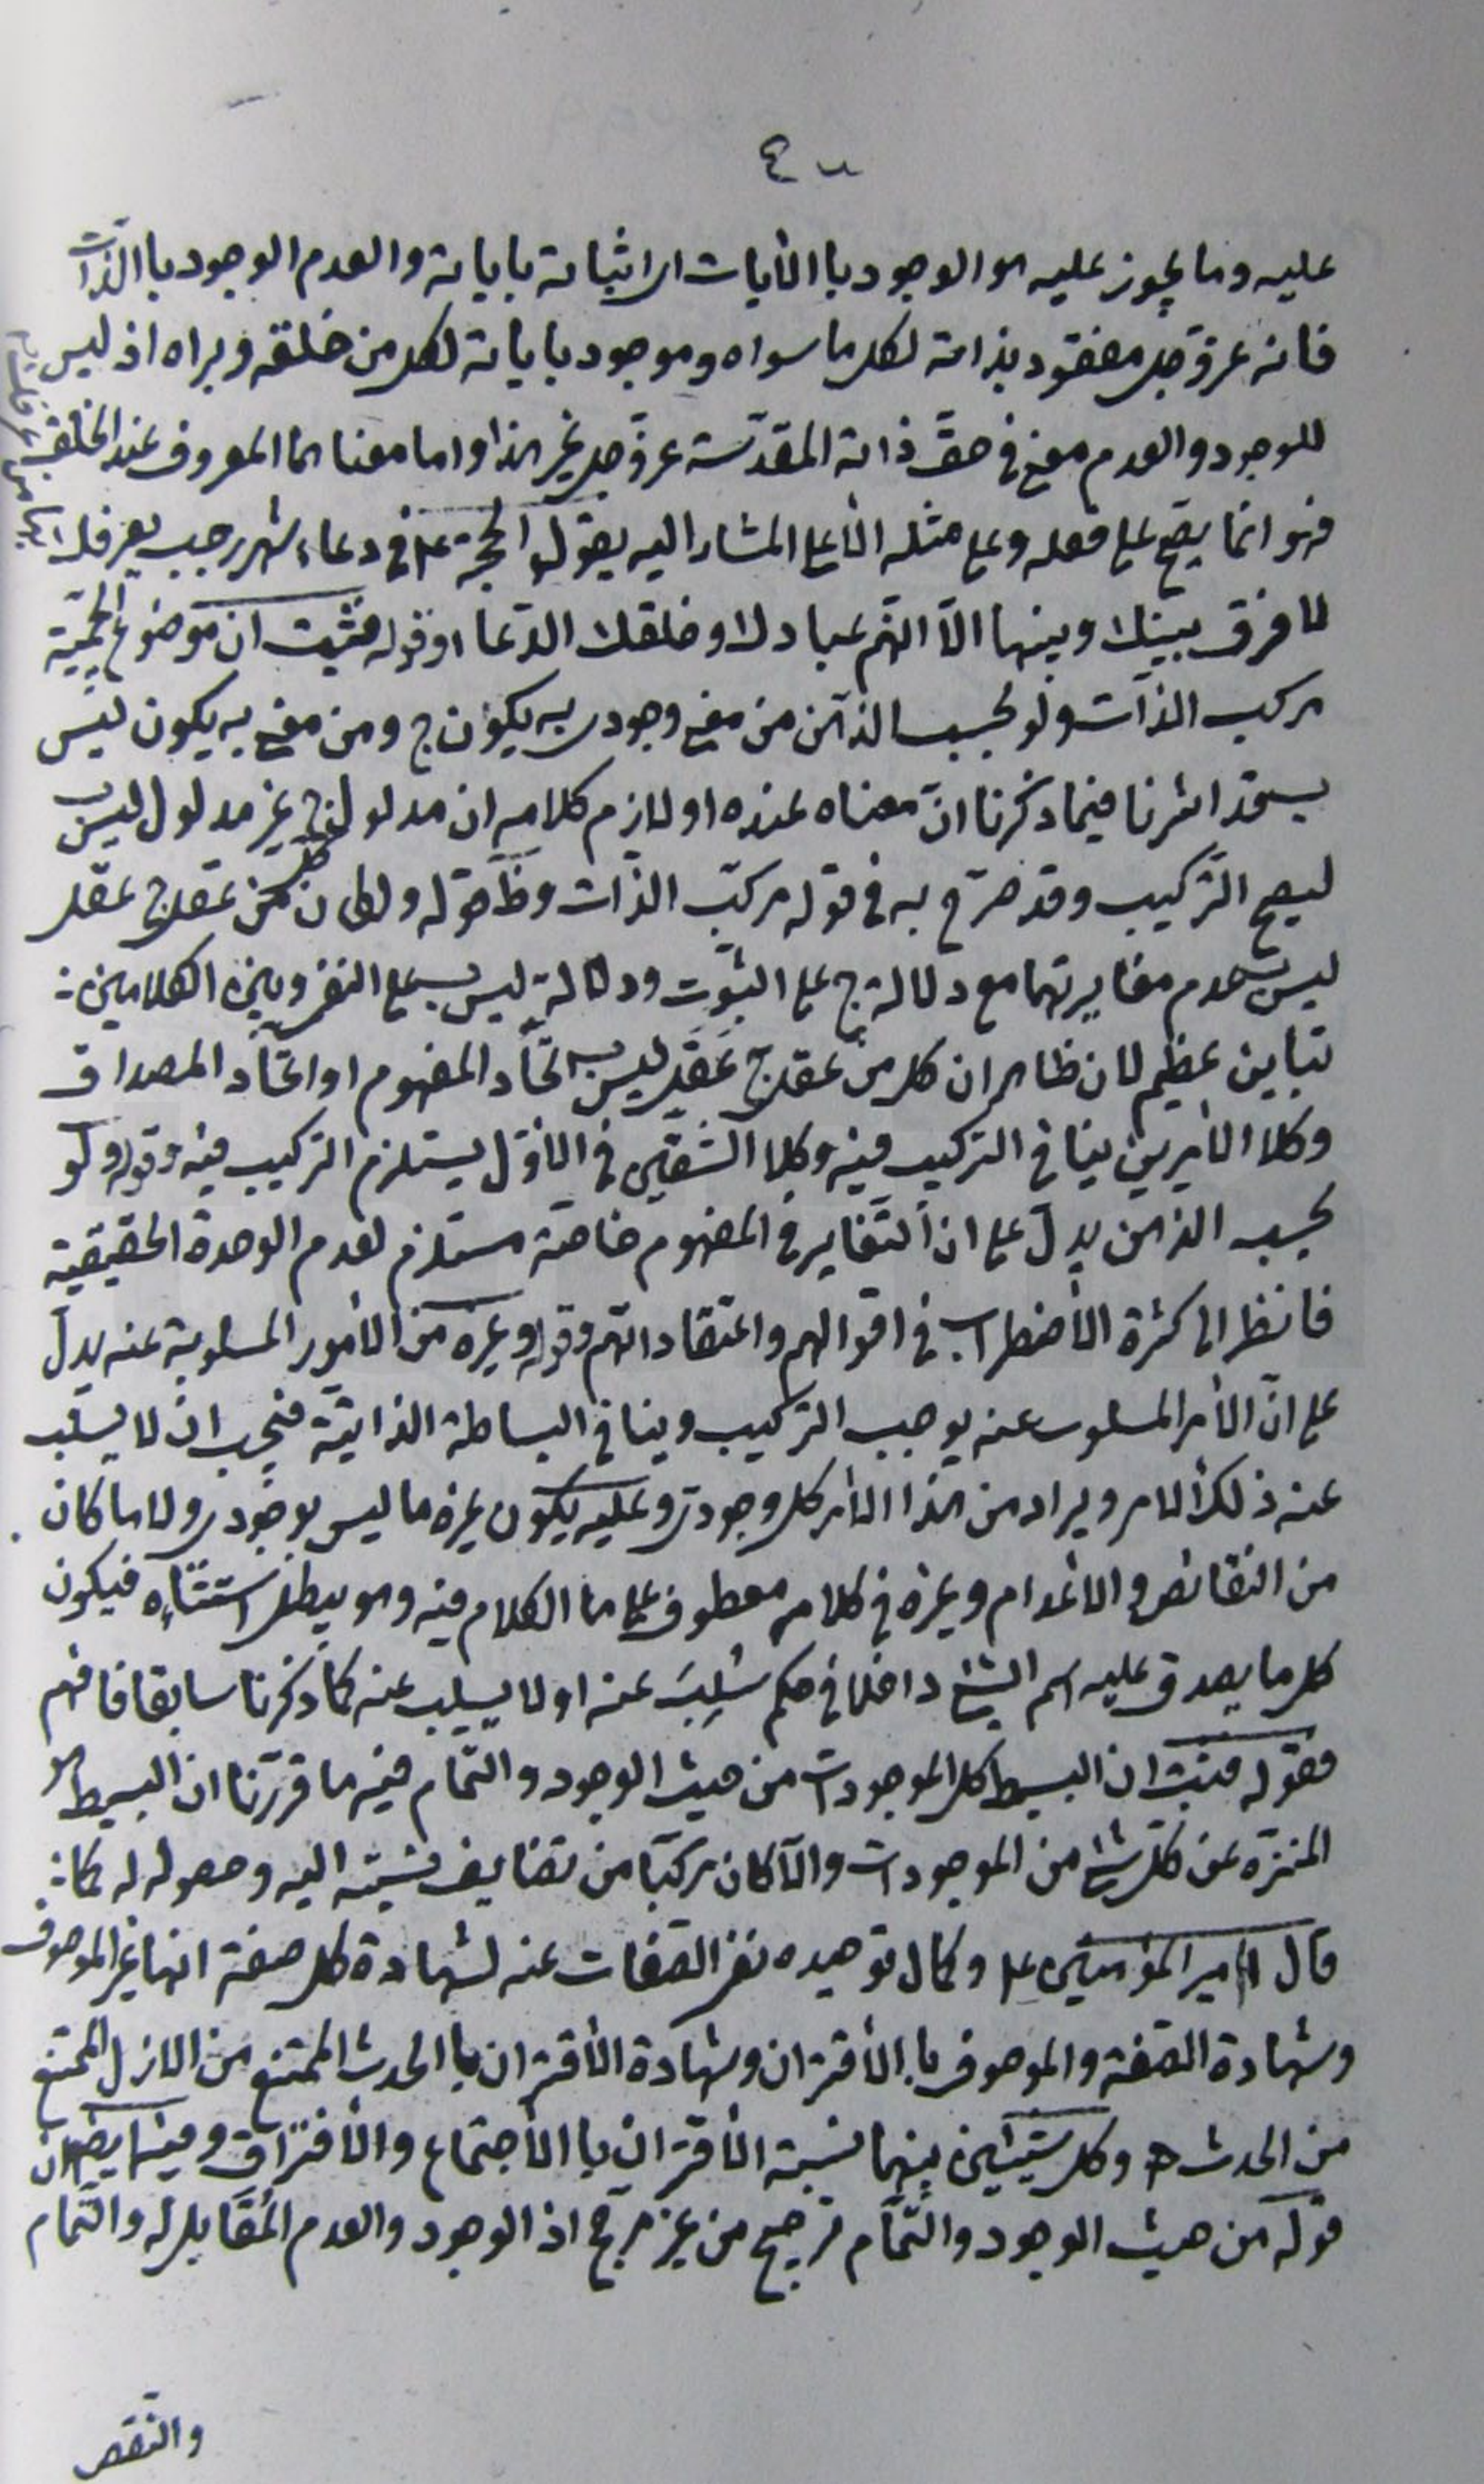 عليه وما يجوز عليه هو الوجود با الأيات اى اثباته باياته والعدم الوجود با الذّات
فانه عزّ وجل مفقود بذاته لكل ما سواه وموجود باياته لكل من خلقه وبراه اذ ليس
للوجود والعدم معنى فى حقّ ذاته المقدّسة عزّ وجل غير هذا واما معناهما المعروف عند الخلق
فهو انما يقع على فعله وعلى مثله الأعلى المشار اليه بقول الحجة ع فى دعاء شهر رجب يعرفك بها من عرفك
لا فرق بينك وبينها الّا انّهم عبادك وخلقك الدّعاء وقوله فثبت ان موضوع الجيميّة
مركب الذّات ولو بحسب الذّهن من معنى وجودى به يكون ج ومن معنى به يكون ليس
ب قد اشرنا فيما ذكرنا انّ معناه عنده او لازم كلامه ان مدلول ج غير مدلول ليس ب
ليصح التّركيب وقد صرّح به فى قوله مركّب الذّات وظ قوله ولكان كل من عقل ج عقل
ليس ب عدم مغايرتهما مع دلالة ج على الثبوت ودلالة ليس ب على النفى وبين الكلامين
تباين عظيم لان ظاهر ان كل من عقل ج عقل ليس ب اتحاد المفهوم او اتحاد المصداق
وكلا الأمرين ينافى التركيب فيه وكلا الشقّين فى الأوّل يستلزم التركيب فيه وقوله ولو
بحسب الذهن يدلّ على ان التّغاير فى المفهوم خاصّة مستلزم لعدم الوحدة الحقيقية
فانظر الى كثرة الأضطراب فى اقوالهم واعتقاداتهم وقوله وغيره من الأمور المسلوبة عنه يدلّ
على انّ الأمر المسلوب عنه يوجب التركيب وينافى البساطة الذاتيّة فيجب ان لا يسلب
عنه ذلك الامر ويراد من هذا الأمر كل وجودىّ وعليه يكون غيره ما ليس بوجودى ولا ما كان
من النقائص والاعدام وغيره فى كلامه معطوف على ما الكلام فيه وهو يبطل استثناءه فيكون
كل ما يصدق عليه اسم الشئ داخلا فى حكم سُلِبَ عنه او لا يسلب عنه كما ذكرنا سابقا فافهم
فقوله فثبت ان البسيط كل الموجودات من حيث الوجود والتّمام فيه ما قررنا ان البسيط هو
المنزّه عن كلّ شئ من الموجودات والّا كان مركبّا من تضايف نسبته اليه وحصوله له كما
قال امير المؤمنين ع وكمال توحيده نفى الصّفات عنه لشهادة كل صفة انها غير الموصوف
وشهادة الصّفة والموصوف با الأقتران وشهادة الأقتران با الحدث الممتنع من الازل الممتنع
من الحدث ه وكل شيئين بينهما نسبة الأقتران با الأجتماع والأفتراق وفيه ايضا ان
قوله من حيث الوجود والتّمام ترجيح من غير مرجّح اذ الوجود والعدم المُقابل له والتّمام
والنّقص